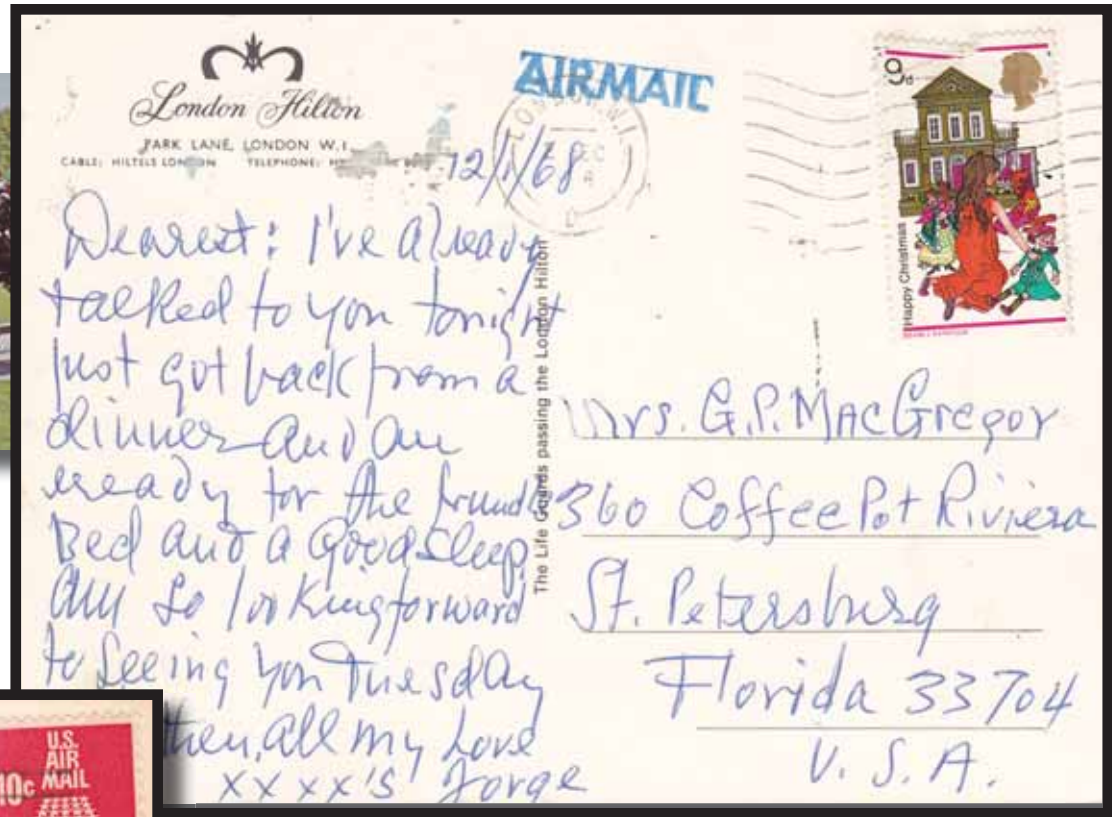 London Hilton
PARK LANE, LONDON W.1.
CABLE: HILTELS LONDON TELEPHONE:
AIRMAIL
12/1/68
9d
Happy Christmas
Dearest: I've already
talked to you tonight
just got back from a
dinner and am
ready for the trundle
Bed and a good sleep.
Am so looking forward
to seeing you Tuesday
then, all my love
xxxx's Jorge
The Life Guards passing the London Hilton
Mrs. G.P. MacGregor
360 Coffee Pot Riviera
St. Petersburg
Florida 33704
U.S.A.
U.S.
AIR
MAIL
10c